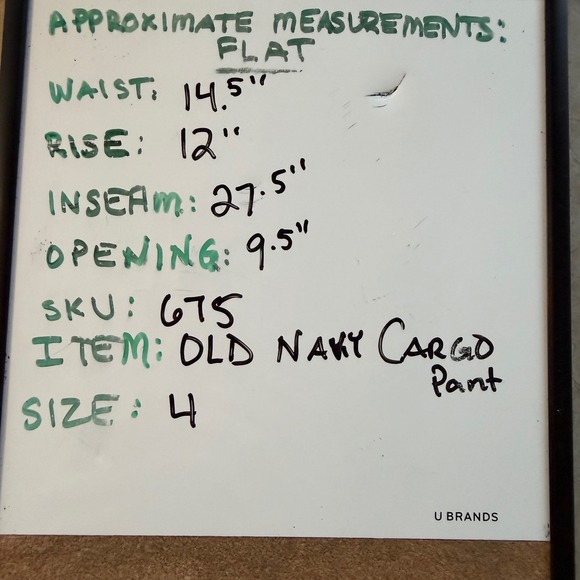 APPROXIMATE MEASUREMENTS:
FLAT
WAIST: 14.5"
RISE: 12"
INSEAM: 27.5"
OPENING: 9.5"
SKU: 675
ITEM: OLD NAVY CARGO
Pant
SIZE: 4
U BRANDS